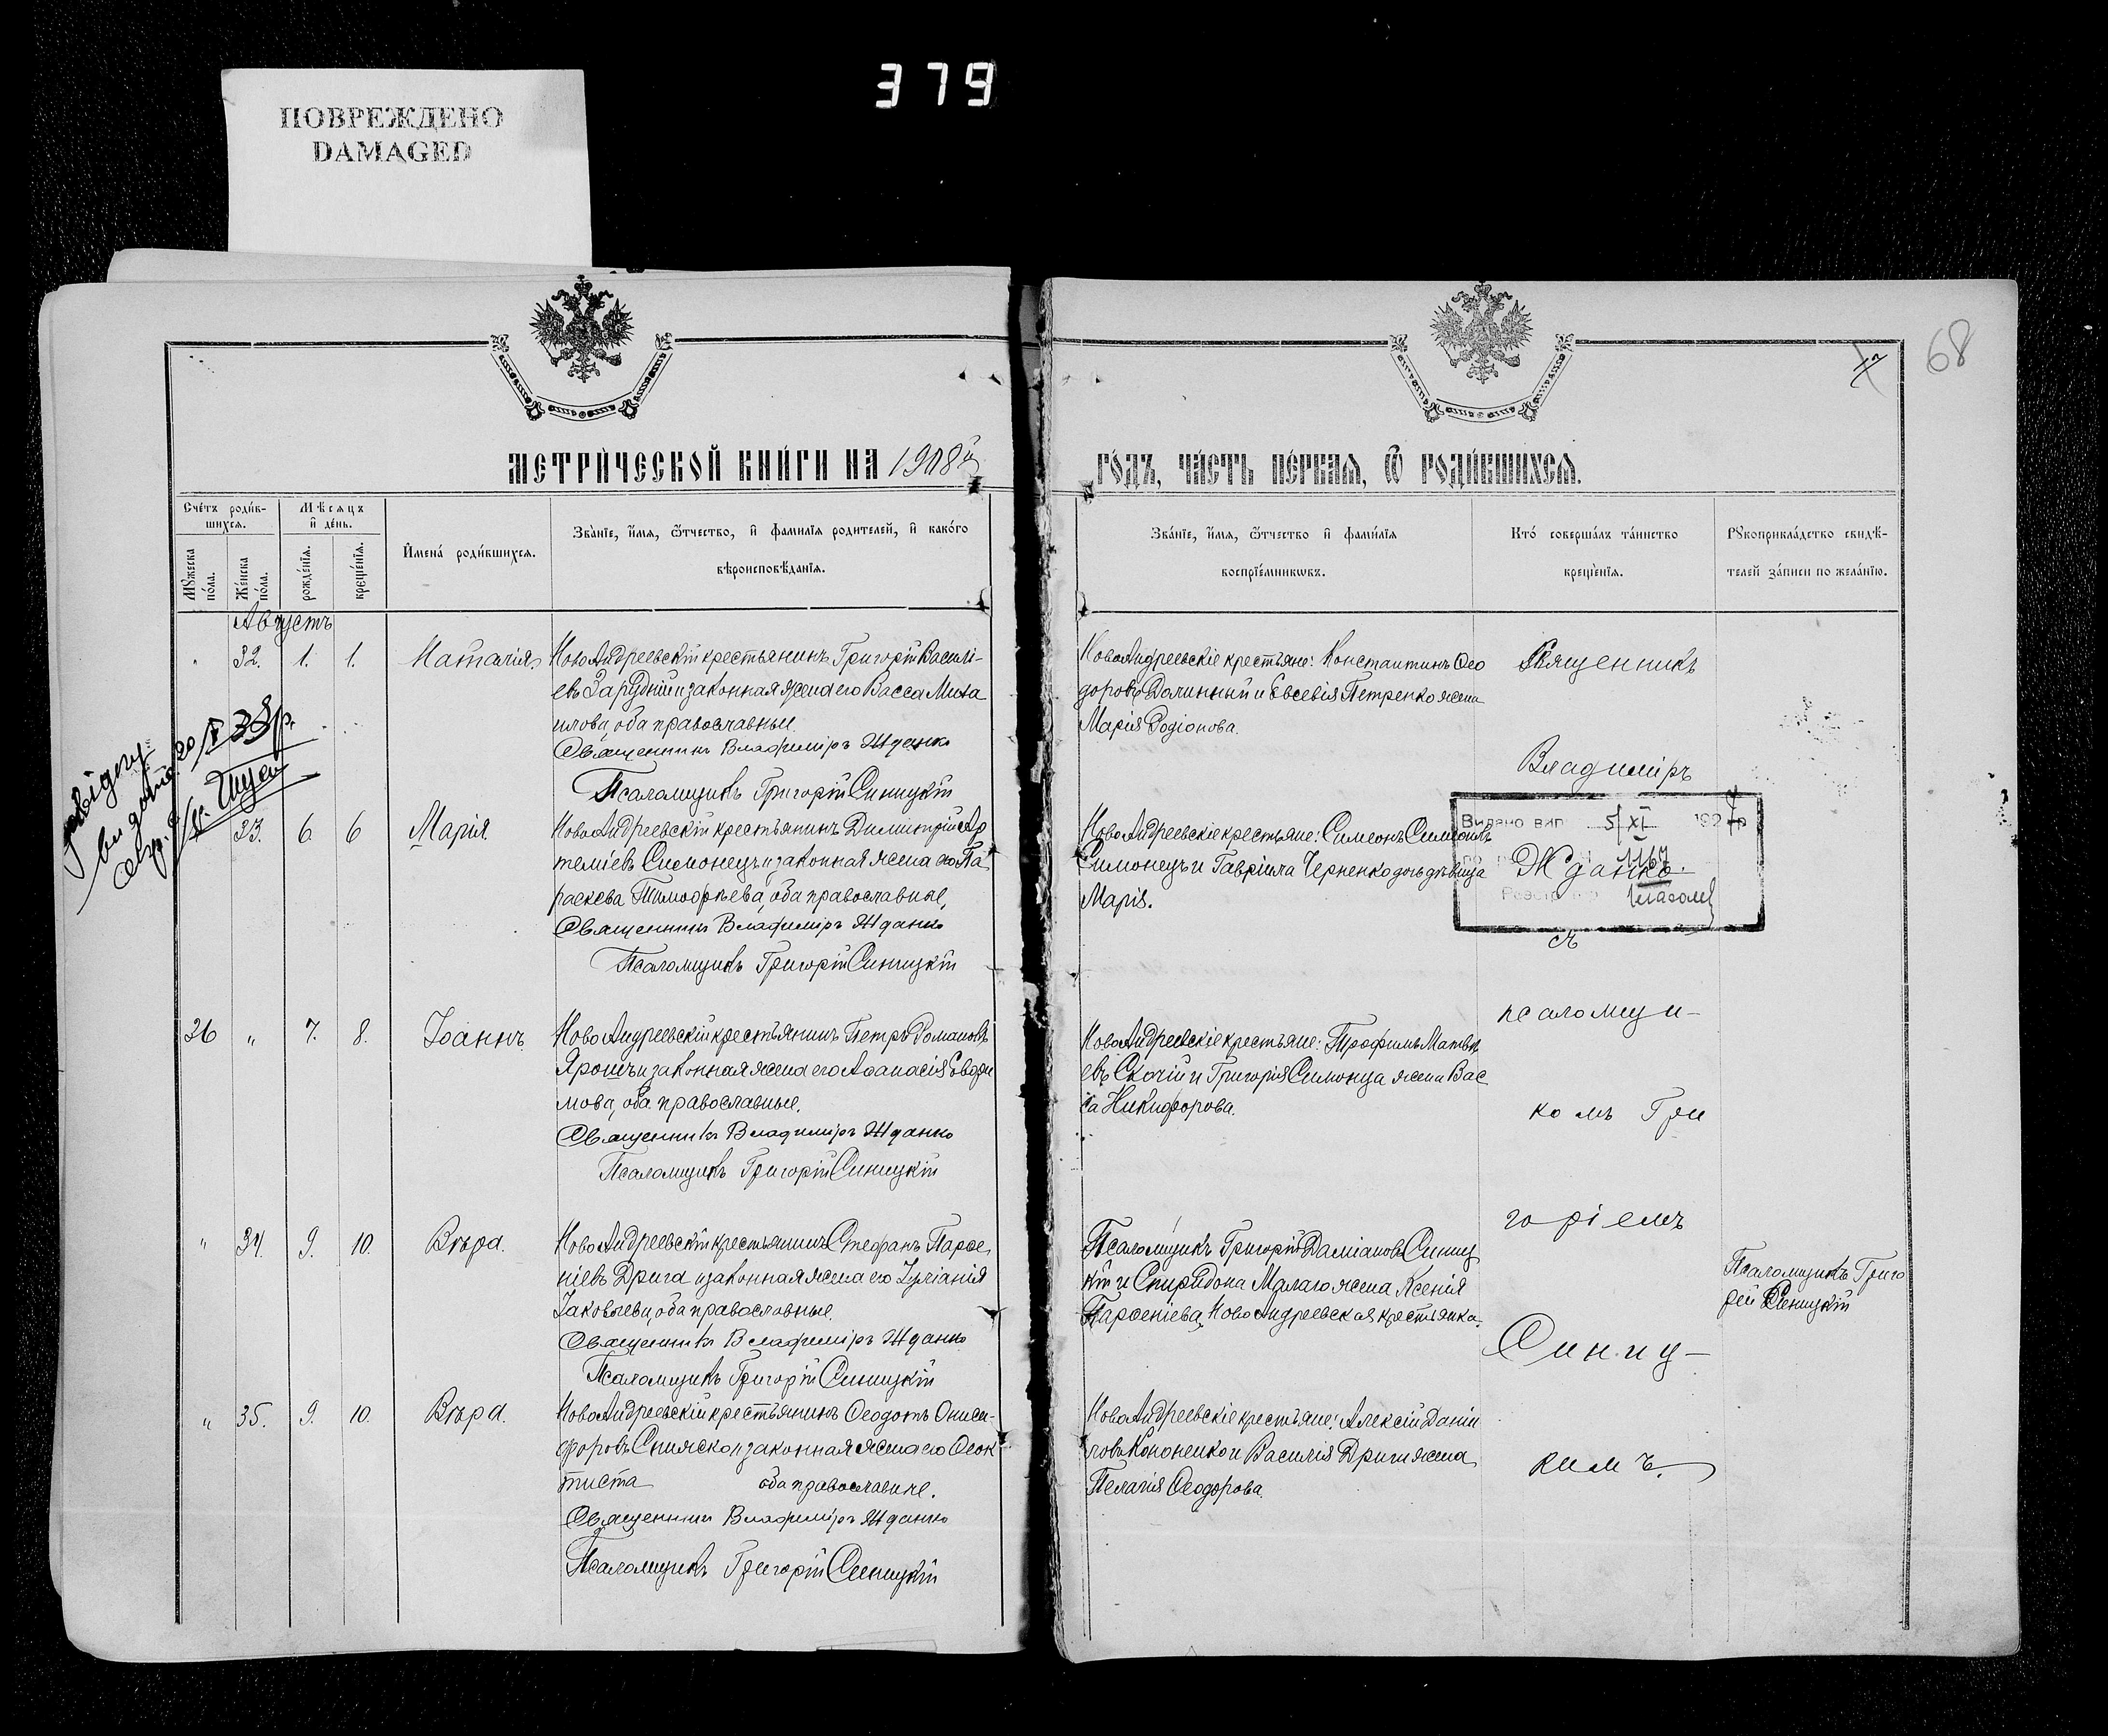 379
ПОВРЕЖДЕНО
DAMAGED
68
МЕТРИЧЕСКОЙ КНИГИ НА 1908й
ГОДЪ, ЧАСТЬ ПЕРВАЯ, Ѿ РОДИВШИХСЯ.
Счетъ родив-
шихся.
Мѣсяцъ
и день.
Мужеска
пола.
Женска
пола.
рожденія.
крещенія.
Имена родившихся.
Званіе, имя, ѿтчество, и фамилія родителей, и какого
вѣроисповѣданія.
Званіе, имя, ѿтчество и фамилія
воспріемниковъ.
Кто совершалъ таинство
крещенія.
Рукоприкладство свидѣ-
телей записи по желанію.
Августъ
32. 1. 1. Наталія
НовоАндреевскій крестьянинъ Григорій Василі-
евъ Зарудній и законная жена его Васса Миха
илова, оба православные.
Священникъ Владиміръ Жданко
Псаломщикъ Григорій Синицкій
НовоАндреевскіе крестьяне: Константинъ Ѳео
доровъ Долинный и Евсевія Петренко жена
Марія Родіонова.
33. 6 6 Марія
НовоАндреевскій крестьянинъ Димитрій Ар
теміевъ Симонецъ и законная жена его Па
раскева Тимофѣева, оба православные,
Священникъ Владиміръ Жданко
Псаломщикъ Григорій Синицкій
НовоАндреевскіе крестьяне: Симеонъ Симеоновъ
Симонецъ и Гавріила Черненко дочь дѣвица
Марія.
26 „ 7. 8. Іоаннъ
НовоАндреевскій крестьянинъ Петръ Романовъ
Ярошъ и законная жена его Аѳанасія Евдоки
мова, оба православные.
Священникъ Владиміръ Жданко
Псаломщикъ Григорій Синицкій
НовоАндреевскіе крестьяне: Трофимъ Матвѣ
евъ Скочій и Григорія Симонца жена Вас
са Никифорова.
„ 34. 9. 10. Вѣра.
НовоАндреевскій крестьянинъ Стефанъ Парѳе
ніевъ Дрига и законная жена его Іуліанія
Іаковлева, оба православные.
Священникъ Владиміръ Жданко
Псаломщикъ Григорій Синицкій
Псаломщикъ Григорій Даміановъ Синиц
кій и Спиридона Малаго жена Ксенія
Парѳеніева, НовоАндреевская крестьянка.
Псаломщикъ Григо
рій Синицкій
„ 35. 9. 10. Вѣра.
НовоАндреевскій крестьянинъ Ѳеодотъ Ониси-
форовъ и законная жена его Ѳеок
тиста оба православные.
Священникъ Владиміръ Жданко
Псаломщикъ Григорій Синицкій
НовоАндреевскіе крестьяне: Алексій Даніи
ловъ Кононенко и Василія Дриги жена
Пелагія Ѳеодорова.
Священникъ
Владиміръ
Жданко
съ
псаломщи-
комъ Гри
горіемъ
Синиц-
кимъ.
Видано вип 5/XI 1927р
1167